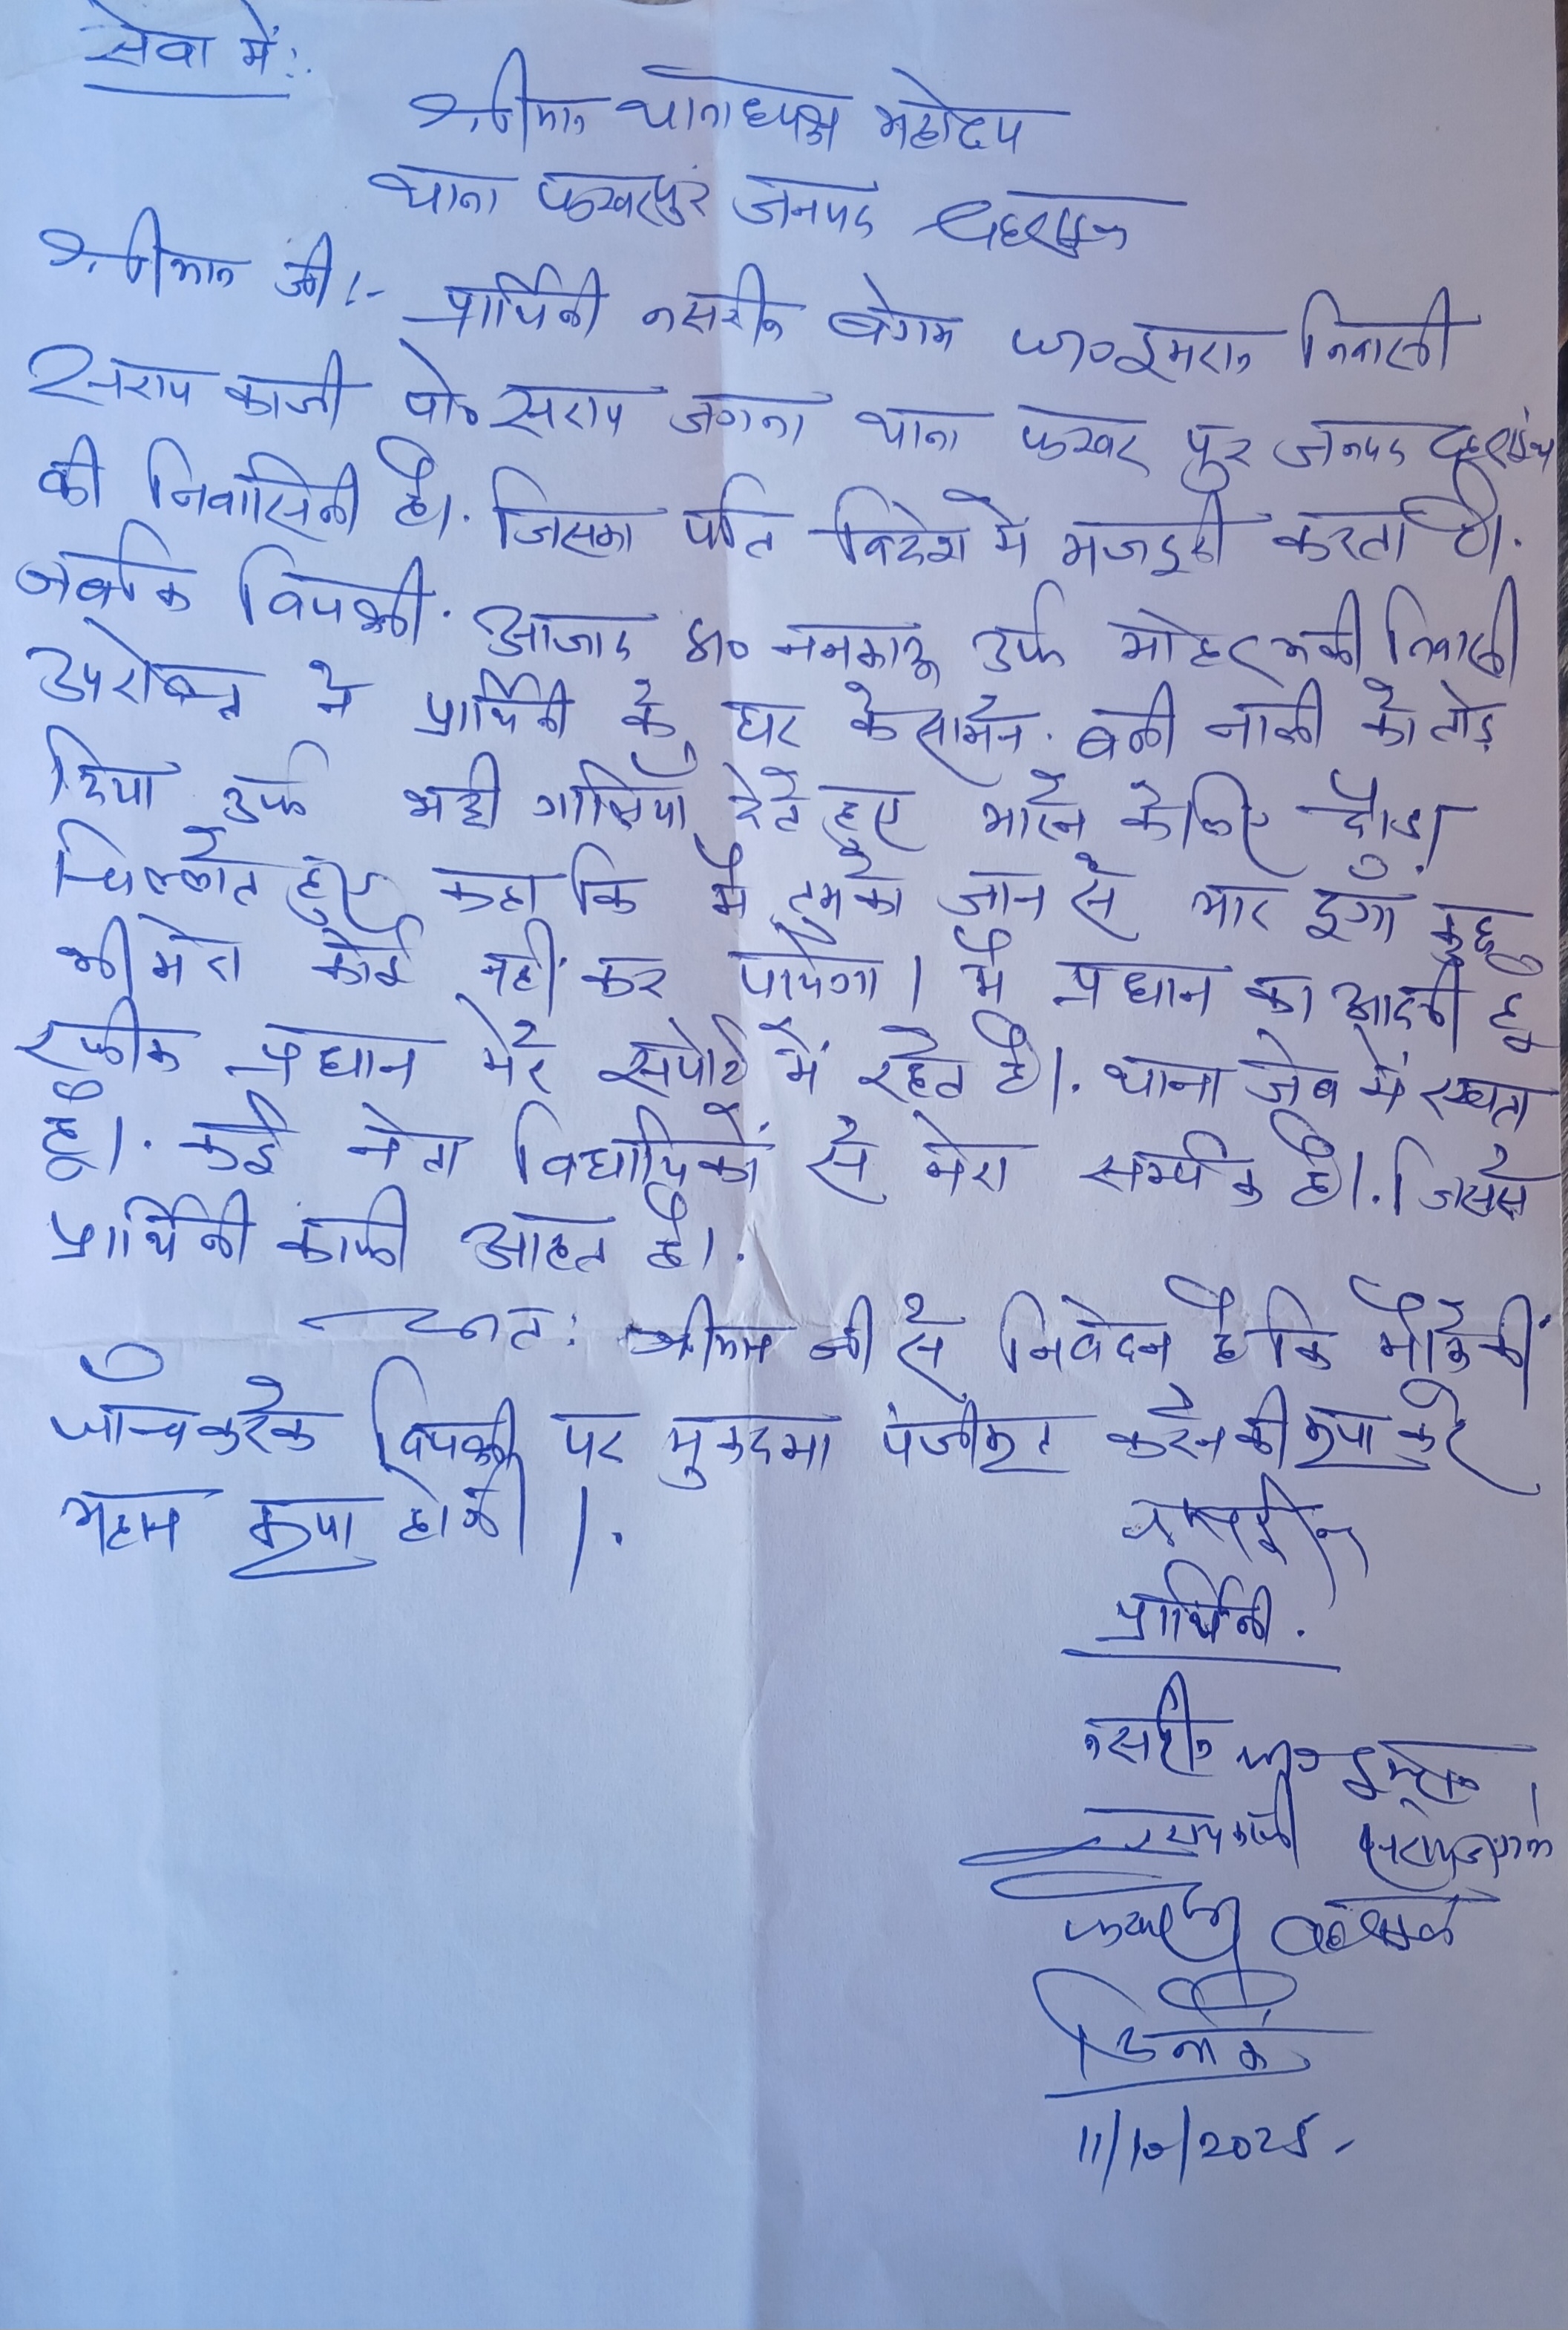 सेवा में:
श्रीमान थानाध्यक्ष महोदय
थाना फखरपुर जनपद बहराइच
श्रीमान जी :- प्रार्थिनी नसरीन बेगम प० इमरान निवासी
सराय काजी पो० सराय जगना थाना फखर पुर जनपद बहराइच
की निवासिनी है।. जिसका पति विदेश में मजदूरी करता है।.
जबकि विपक्षी. आजाद s/o ननकाऊ उर्फ मोहर अली निवासी
उपरोक्त ने प्रार्थिनी के घर के सामने. बनी नाली को तोड़
दिया उर्फ भद्दी गालियाँ देते हुए मारने के लिए दौड़ा
चिल्लाते हुए कहा कि मैं तुमको जान से मार दूँगा कुछ
भी मेरा कोई नहीं कर पायेगा। मैं प्रधान का आदमी हूँ
रफीक प्रधान मेरे सपोर्ट में रहते है।. थाना जेब में रखता
हूँ।. कई नेता विधायिकों से मेरा सर्म्पक है।. जिससे
प्रार्थिनी काफी आहत है।.
अतः श्रीमान जी से निवेदन है कि मौके की
जाँच करके विपक्षी पर मुकदमा पंजीकृत करने की कृपा करें
महान कृपा होगी।.
नसरीन
प्रार्थिनी.
नसरीन प० इमरान
सराय काजी सराय जगना
फखरपुर बहराइच
दिनांक
11/10/2025